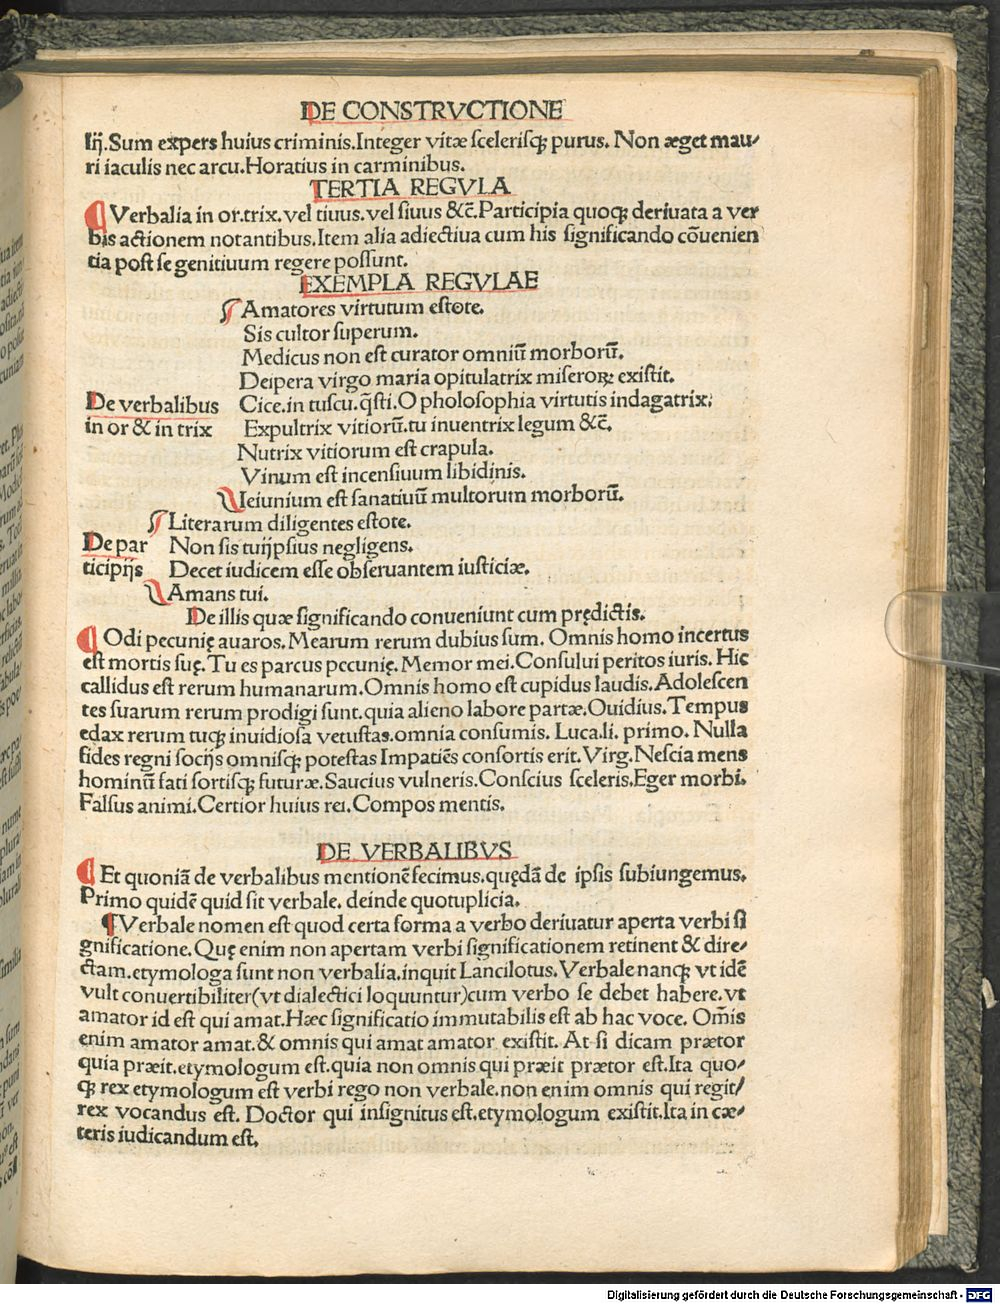 DE CONSTRVCTIONE
Iij.Sum expers huius criminis.Integer vitæ ſceleriſqȝ purus. Non æget mau⸗
ri iaculis nec arcu.Horatius in carminibus.
TERTIA REGVLA
¶ Verbalia in or.trix.vel tiuus.vel ſiuus &c̄.Participia quoqȝ deriuata a ver
bis actionem notantibus.Item alia adiectiua cum his ſignificando cōuenien
tia poſt ſe genitiuum regere poſſunt.
EXEMPLA REGVLAE
Amatores virtutum eſtote.
Sis cultor ſuperum.
Medicus non eſt curator omniū morborū.
Deipera virgo maria opitulatrix miſeroꝝ exiſtit.
De verbalibus Cice.in tuſcu.q̄ſti.O pholoſophia virtutis indagatrix:
in or & in trix Expultrix vitiorū.tu inuentrix legum &c̄.
Nutrix vitiorum eſt crapula.
Vinum eſt incenſiuum libidinis.
Ieiunium eſt ſanatiuū multorum morborū.
Literarum diligentes eſtote.
De par Non ſis tuijpſius negligens.
ticipijs Decet iudicem eſſe obſeruantem iuſticiæ.
Amans tui.
De illis quæ ſignificando conueniunt cum prędictis.
¶ Odi pecunię auaros.Mearum rerum dubius ſum. Omnis homo incertus
eſt mortis ſuę. Tu es parcus pecunię. Memor mei.Conſului peritos iuris. Hic
callidus eſt rerum humanarum.Omnis homo eſt cupidus laudis.Adoleſcen
tes ſuarum rerum prodigi ſunt.quia alieno labore partæ.Ouidius.Tempus
edax rerum tuqȝ inuidioſa vetuſtas.omnia conſumis. Luca.li. primo. Nulla
fides regni ſocijs omniſqȝ poteſtas Impatiēs conſortis erit. Virg.Neſcia mens
hominū fati ſortiſqȝ futuræ.Saucius vulneris.Conſcius ſceleris.Eger morbi.
Falſus animi.Certior huius rei.Compos mentis.
DE VERBALIBVS
¶ Et quoniā de verbalibus mentionē fecimus.quędā de ipſis ſubiungemus.
Primo quidē quid ſit verbale. deinde quotuplicia.
¶Verbale nomen eſt quod certa forma a verbo deriuatur aperta verbi ſi
gnificatione. Quę enim non apertam verbi ſignificationem retinent & dire⸗
ctam.etymologa ſunt non verbalia.inquit Lancilotus. Verbale nanqȝ vt idē
vult conuertibiliter(vt dialectici loquuntur)cum verbo ſe debet habere.vt
amator id eſt qui amat.Hæc ſignificatio immutabilis eſt ab hac voce. Om̄is
enim amator amat.& omnis qui amat amator exiſtit. At ſi dicam prætor
quia præit.etymologum eſt.quia non omnis qui præit prætor eſt.Ita quo⸗
qȝ rex etymologum eſt verbi rego non verbale.non enim omnis qui regit/
rex vocandus eſt. Doctor qui inſignitus eſt.etymologum exiſtit.Ita in cæ⸗
teris iudicandum eſt.
Digitalisierung gefördert durch die Deutsche Forschungsgemeinschaft - DFG